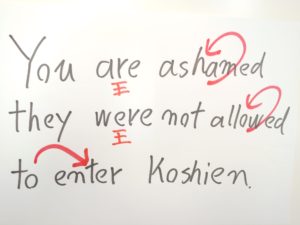 You are ashamed
they were not allowed
to enter Koshien.